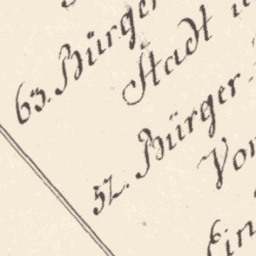 63. Bürger
Stadt
52. Bürger-
Vor
Ein